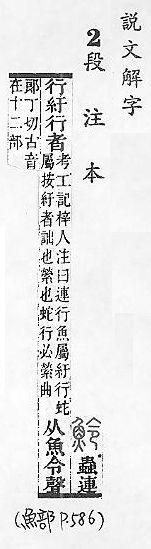 説文解字
2段注本
魿 蟲連
行紆行者
考工記梓人注曰連行魚屬紆行蛇
屬按紆者詘也縈也蛇行必縈曲
从魚令聲
郎丁切古音
在十二部
(魚部 P.586)